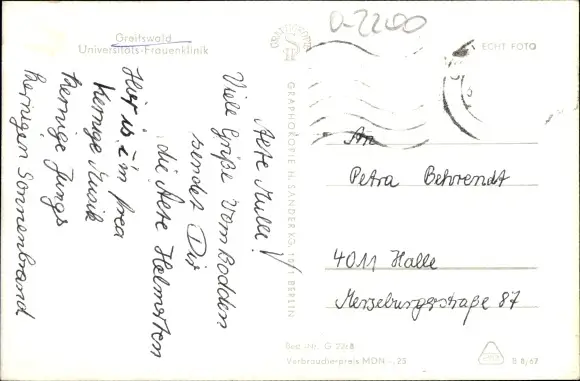 Greifswald
Universitäts-Frauenklinik
a-2200
ECHT FOTO
Alte Mulle!
Viele Grüße vom Bodden
sendet Dir
die Alte Halmerten
Hier is i'm frea
kernige Musik
kernige Jungs
kernigen Sonnenbrand
GRAPHOKOPIE H. SANDER KG, 1071 BERLIN
An
Petra Behrendt
4011 Halle
Merseburgerstraße 87
Best.-Nr. G 2268
Verbraucherpreis MDN -,25
B 8/67